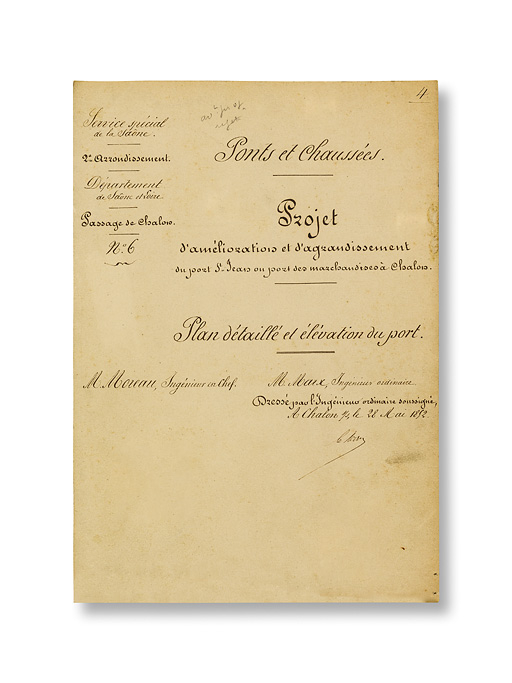 4
Service spécial
de la Saône.
2e Arrondissement.
Département
de Saône et Loire
Passage de Chalon.
N° 6
Ponts et Chaussées.
Projet
d'amélioration et d'agrandissement
du port St Jean ou port des marchandises à Chalon.
Plan détaillé et élévation du port.
M. Moreau, Ingénieur en Chef.
M. Maix, Ingénieur ordinaire
Dressé par l'Ingénieur ordinaire soussigné,
A Chalon s/s le 28 Mai